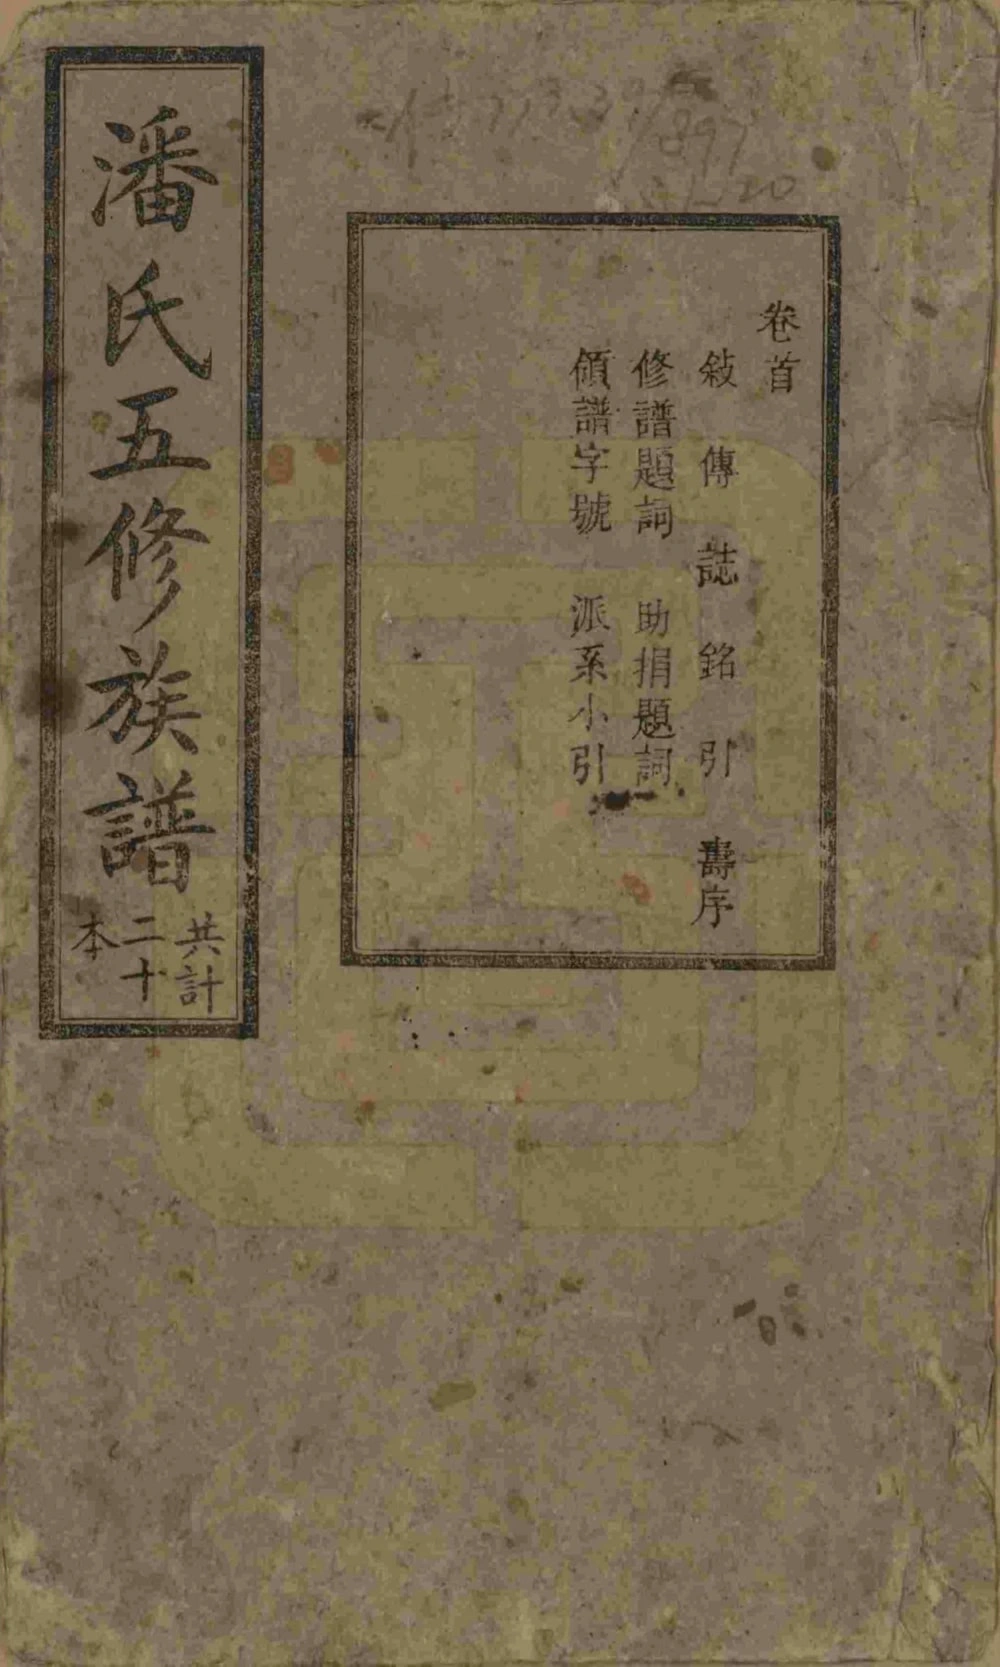 卷首
敍 傳 誌 銘 引 壽序
修譜題詞 助捐題詞
領譜字號 派系小引
潘氏五修族譜
共計
二十
本
897